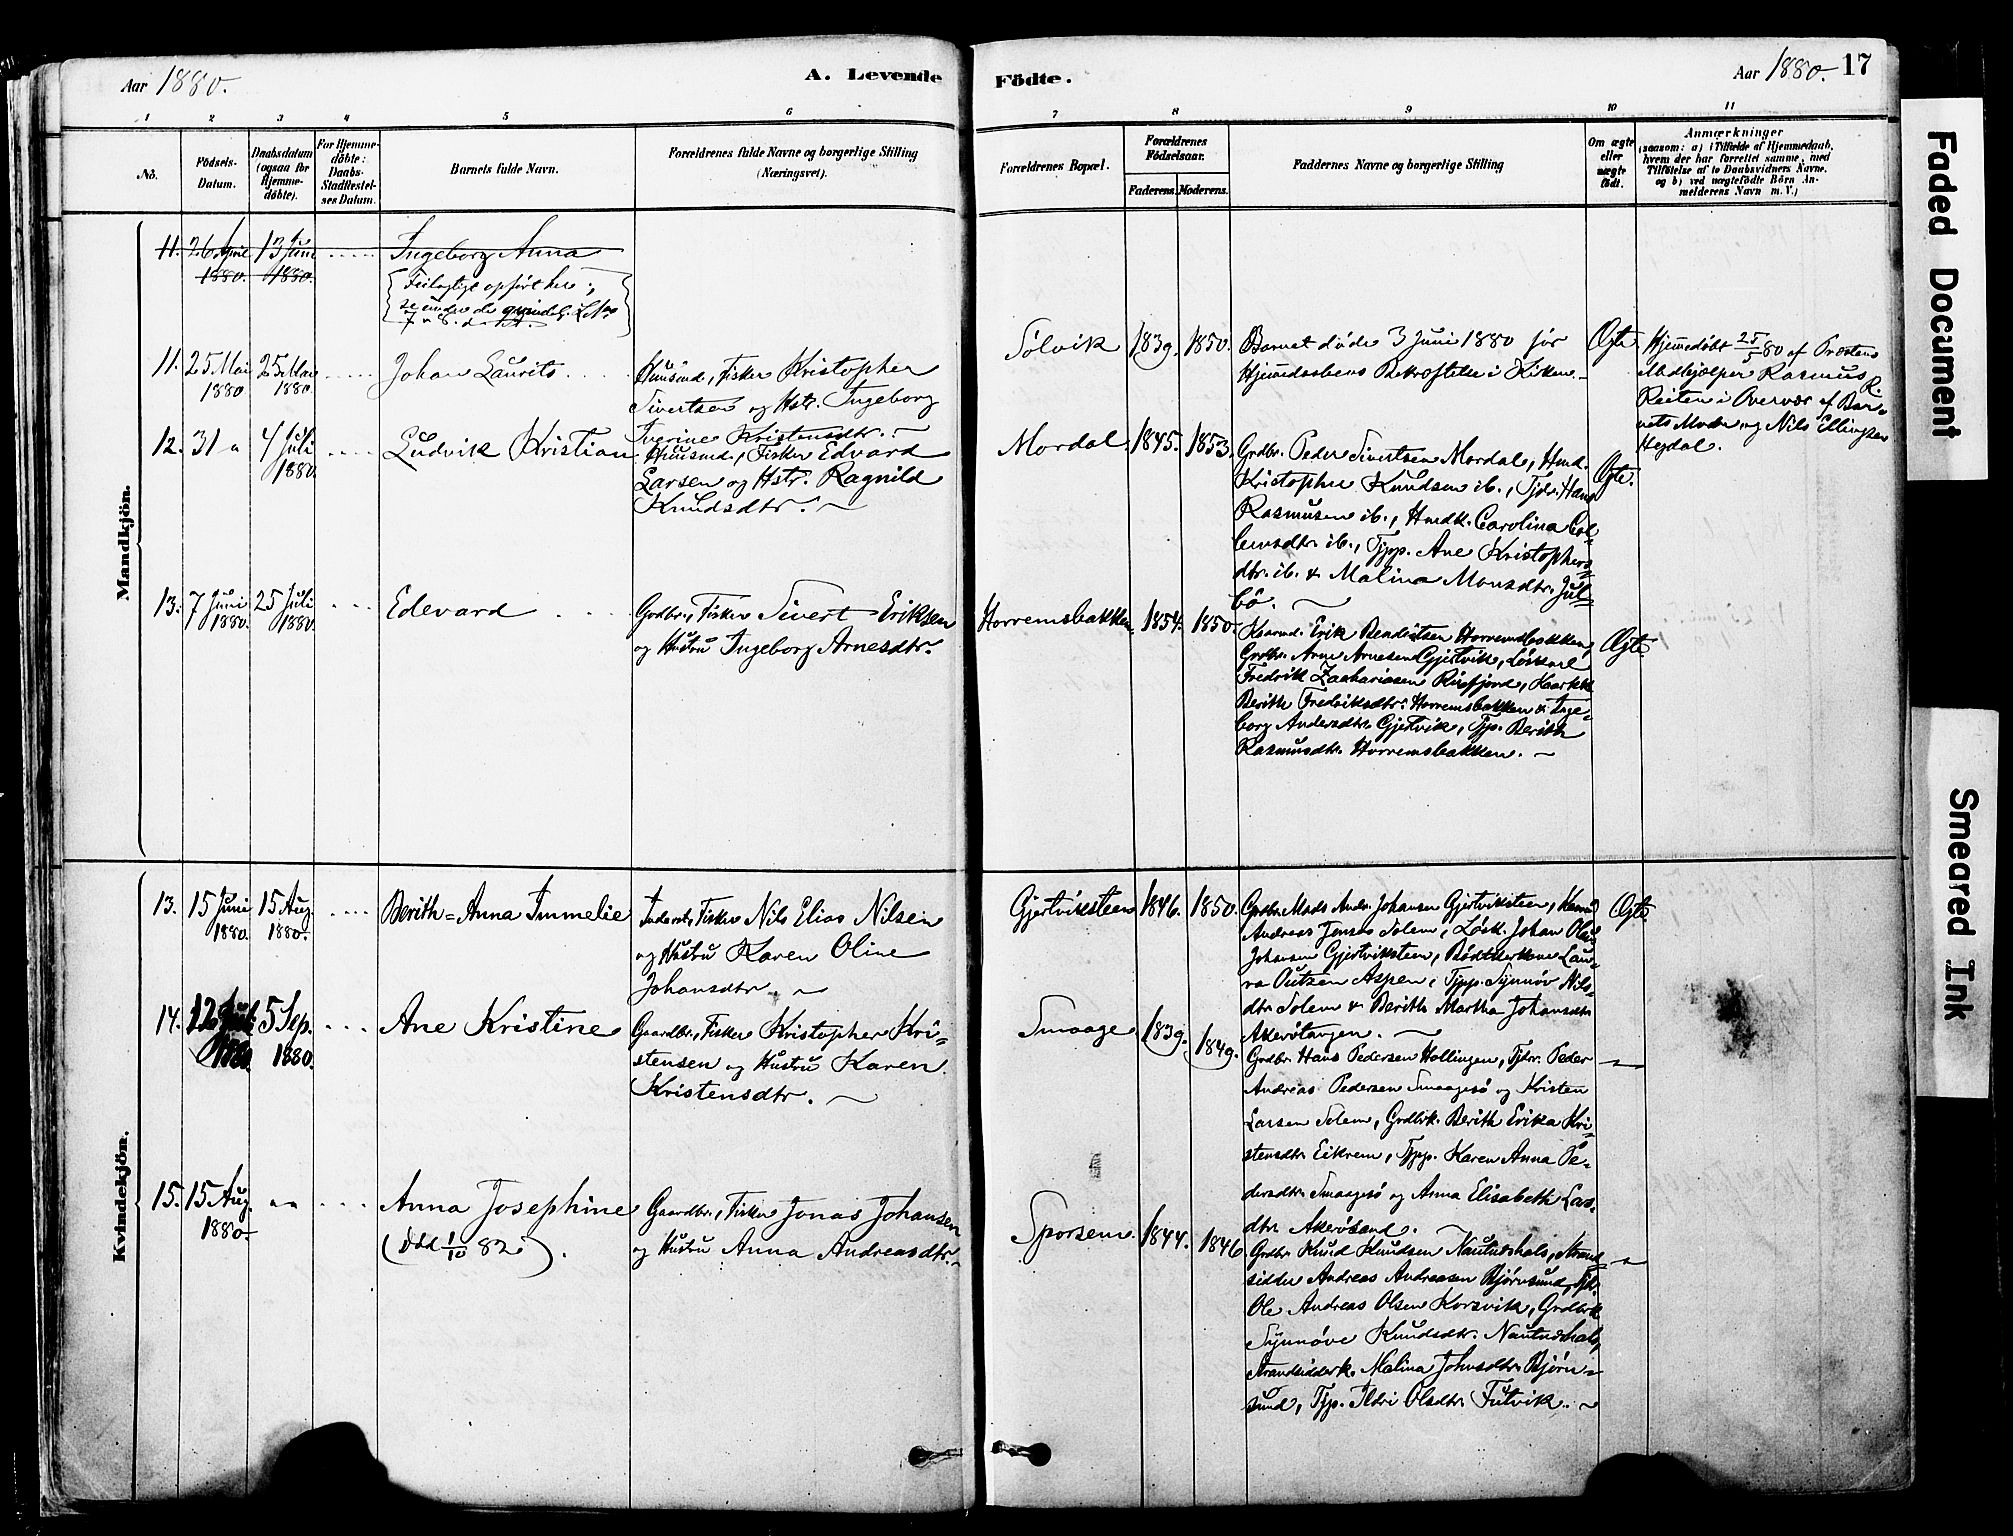 Aar 1880.
A. Levende
Födte.
Aar 1880. 17
1 2 3 4 5 6 7 8 9 10 11
No.
Födsels-
Datum.
Daabsdatum
(ogsaa for
Hjemme-
döbte).
For Hjemme-
döbte:
Daabs-
Stadfæstel-
ses Datum.
Barnets fulde Navn.
Forældrenes fulde Navne og borgerlige Stilling
(Næringsvei).
Forældrenes Bopæl.
Forældrenes
Födselsaar.
Faderens. Moderens.
Faddernes Navne og borgerlige Stilling
Om ægte
eller
uægte
födt.
Anmærkninger
(saasom: a) i Tilfælde af Hjemmedaab,
hvem der har forrettet samme, med
Tilföielse af to Daabsvidners Navne.
og b) ved uægtefödte Börn An-
melderens Navn m. V.)
Mandkjön.
11. 26 April 1880. 13 Juni 1880. Ingeborg Anna
Feilagtigt opført her;
11. 25 Mai 1880 25 Mai 1880. Johan Laurits
Huusmd, Fisker Kristopher
Sivertsen og Hstr. Ingeborg
Iverine Kristensdtr.
Solvik 1839. 1850.
Barnet døde 3 Juni 1880 før
Hjemedaabens Bekræftelse i Kirken
Ægte
Hjemedøbt 25/5 80 af Præstens
Medhjelper Rasmus R.
Reiten i Overvær af Bar-
nets Moder og Nils Ellingsen
Hegdal.
12. 31 " 4 Juli 1880. Ludvik Kristian
Huusmd, Fisker Edvard
Larsen og Hstr. Ragnild
Knudsdtr.
Mordal 1845. 1853.
Grdbr. Peder Sivertsen Mordal, Hmd.
Kristopher Knudsen ib., Tjdr. Hans
Rasmusen ib., Hmdk. Carolina
ib., Tjpp. Ane Kristophers-
dtr. ib. & Malina Monsdtr. Jul-
bö.
Ægte.
13. 7 Juni 1880. 25 Juli 1880. Edevard
Grdbr., Fisker Sivert Eriksen
og Hustru Ingeborg Arnesdtr.
Horremsbakken. 1854. 1850.
Erik Bendiktsen Horremsbakken,
Grdbr. Arne Arnesen Gjertvik, Løskarl
Fredrik Zachariasen
Berith Fredriksdtr. Horremsbakken & Inge-
borg Andersdtr. Gjertvik, Tjp. Berith
Rasmusdtr. Horremsbakken.
Ægte.
Kvindekjön.
13. 15 Juni 1880. 15 Aug. 1880. Berith-Anna Immelie
Inderst, Fisker Nils Elias Nilsen
og Hustru Karen Oline
Johansdtr.
Gjertviksteen 1846. 1850.
Grdbr. Mads Andr. Johansen Gjertviksteen,
Andreas Jonsen Solem, Løsk. Johan
Johansen Gjertviksteen, Lau-
ra Aspen, Tjpp. Synnöv Nils-
dtr Solem & Berith Martha Johansdtr
Akerötangen.
Ægte.
14. 12 Juli 1880. 5 Sep. 1880. Ane Kristine
Gaardbr., Fisker Kristopher Kri-
stensen og Hustru Karen
Kristensdtr.
Smaage 1839. 1849.
Grdbr. Hans Pedersen Hollingen, Tjdr. Peder
Andreas Pedersen Smaagesö og Kristen
Larsen Solem, Grdbrk. Berith Erika Kri-
stensdtr Eikrem, Tjpp. Karen Anna Pe-
dersdtr Smaagesö og Anna Elisabeth Lars-
dtr Akerösand.
15. 15 Aug. 1880 " " Anna Josephine
(död 1/10 82).
Gaardbr., Fisker Jonas Johansen
og Hustru Anna Andreasdtr.
Sporsem. 1844. 1846
Grdbr. Knud Knudsen Nautneshals, Strand-
sidder Andreas Andreasen Bjørnsund, Tjdr.
Ole Andreas Olsen Korsvik, Grdbrk
Synnöve Knudsdtr. Nautneshals,
Strandsidderk. Malina Johnsdtr. Bjørn-
sund, Tjp. Ildri Olsdtr. Futvik.
Faded Document
Smeared Ink